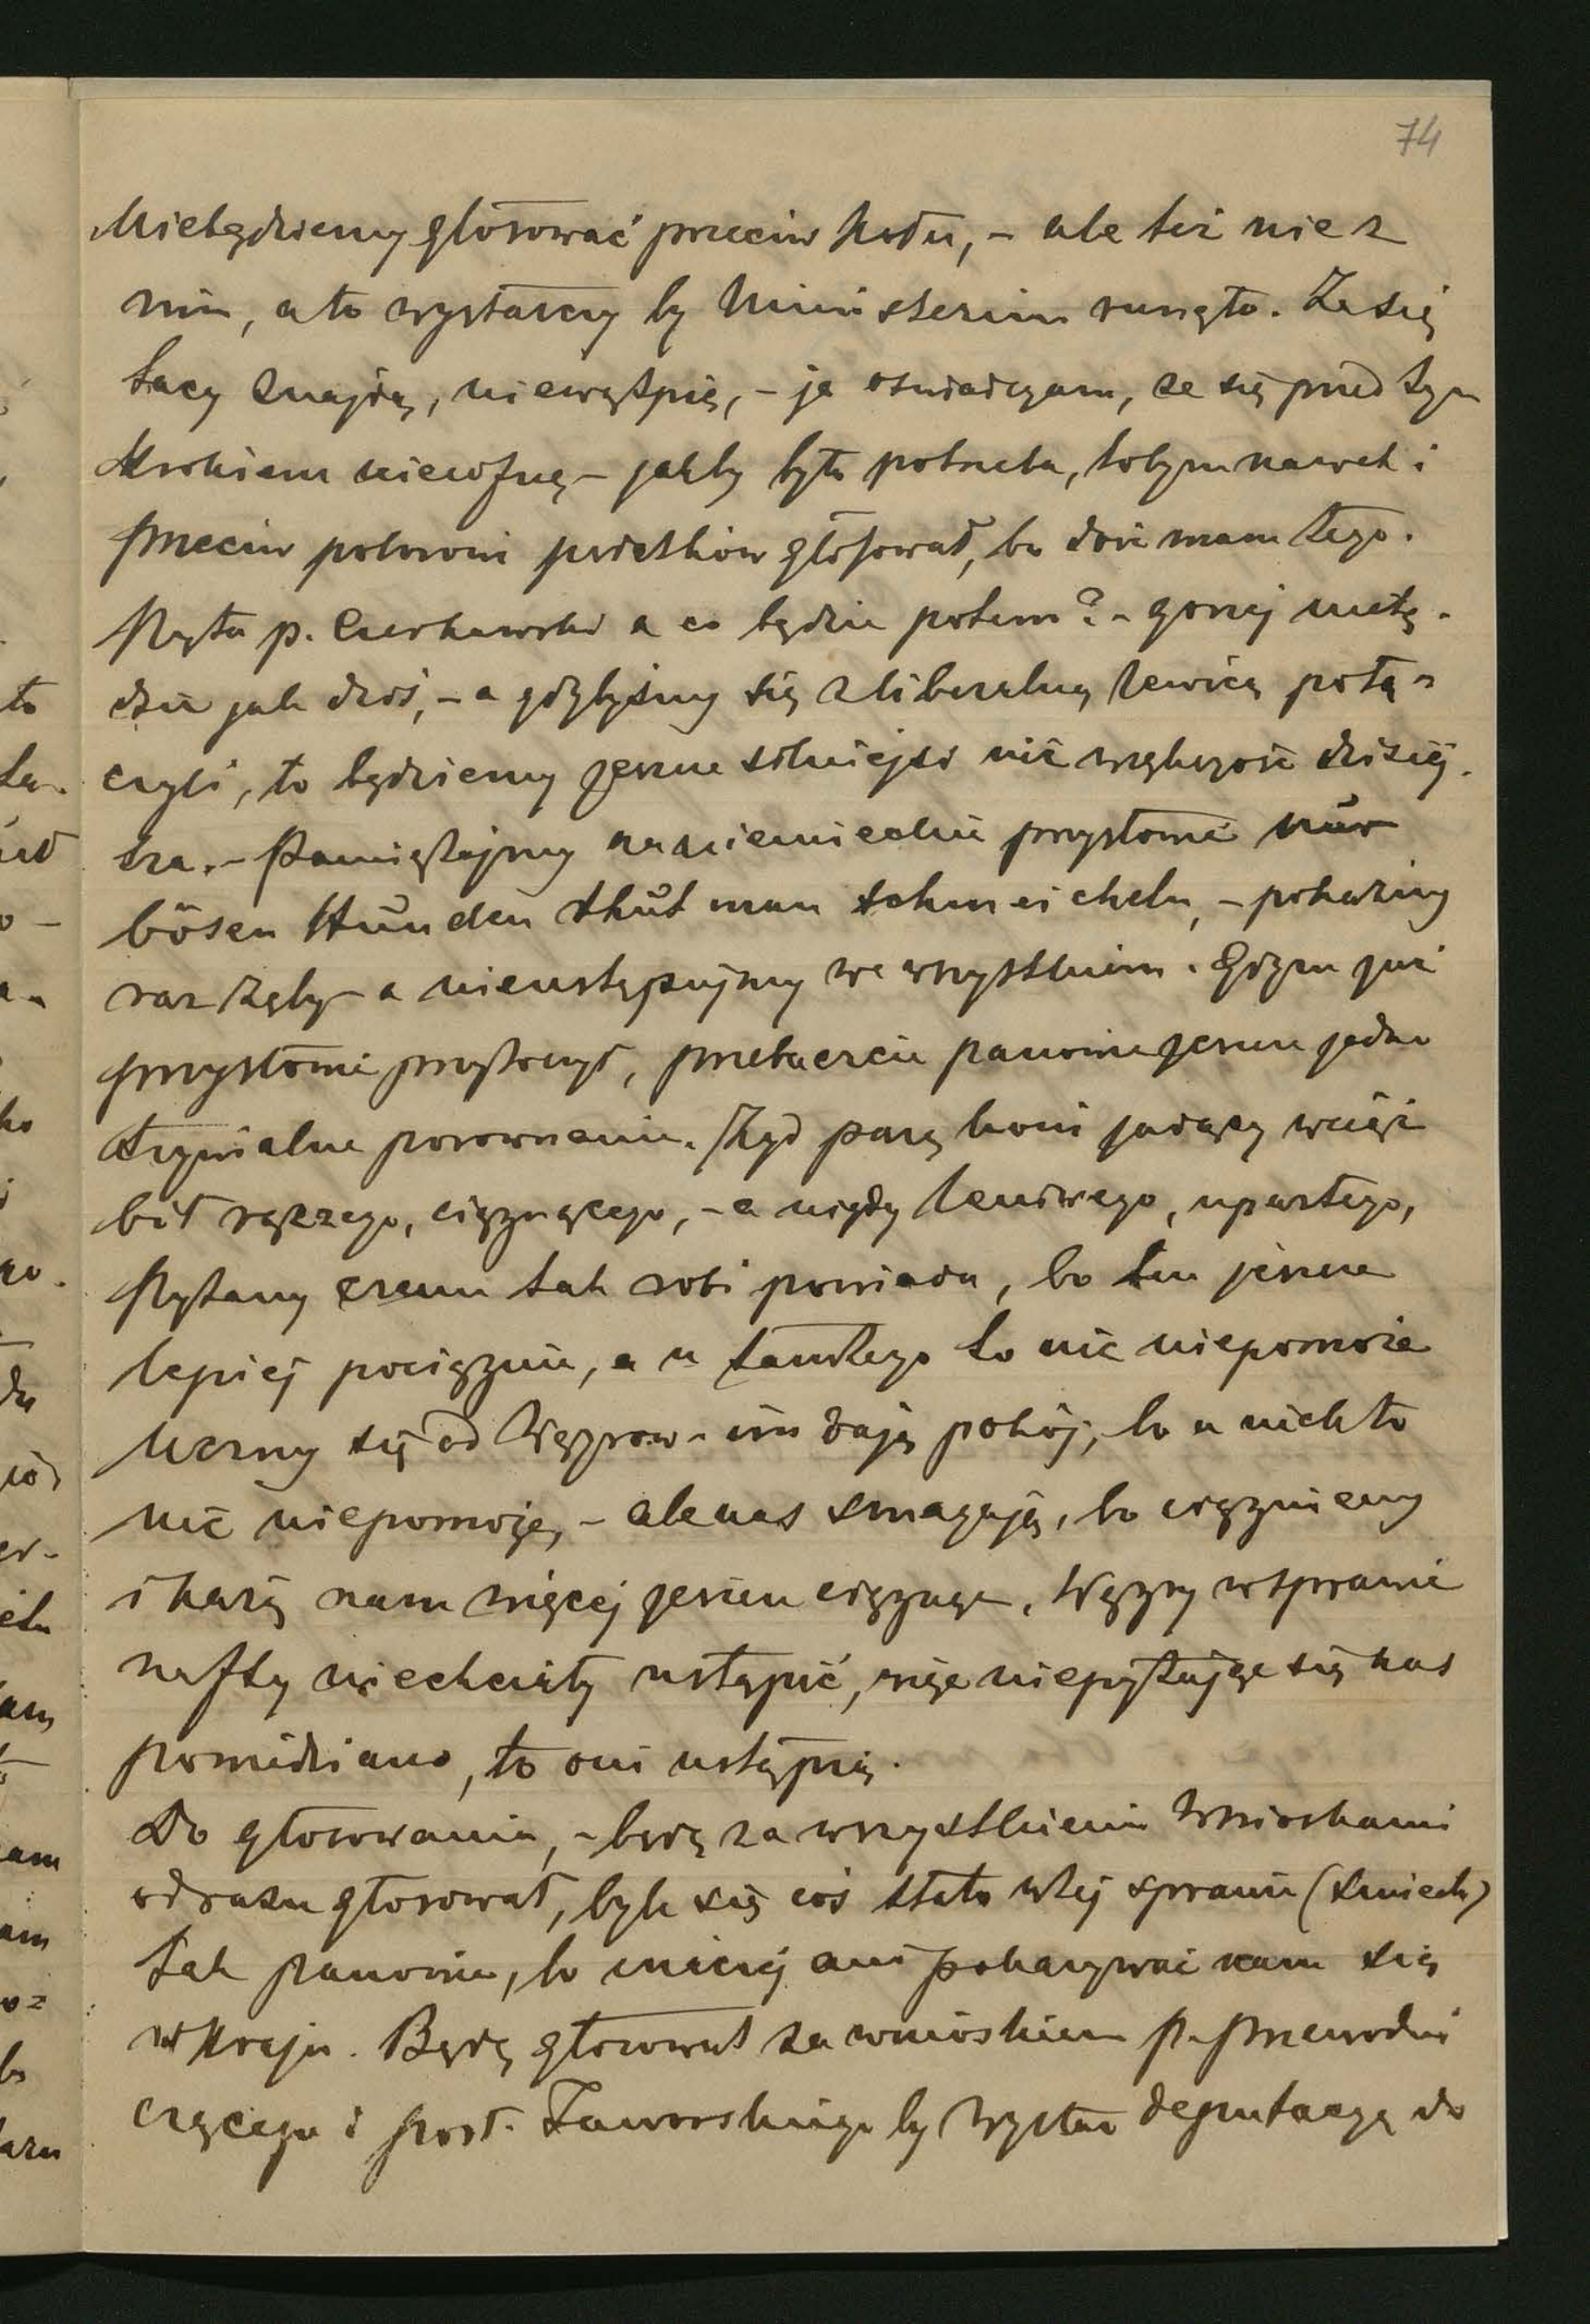 74
Niebędziemy głosować przeciw Kołu, – ale też nie z
nim, a to wystarczy by Ministerium runęło. Że się
tacy znajdą, niewątpię, – ja oświadczam, że się przed tym
Krokiem niecofnę – jakby była potrzeba, tobym nawet i
przeciw poborowi podatków głosował, bo dość mam tego.
Pyta p. Czerkawski a co będzie potem? – gorzej niebę-
dzie jak dziś, – a gdybyśmy się z liberalną lewicą połą-
czyli, to będziemy jeszcze silniejsi niż większość dzisiej-
sza. – Pamiętajmy na niemieckie przysłowie nur
bösen Hunden thut man schmeicheln, – pokażmy
raz zęby – a nieustępujmy we wszystkiem. Gdym już
przysłowie przytoczył, przebaczcie panowie jeszcze jedno
trywialne porównanie. Żyd parą koni jadący wciąż
bił rączego, ciągnącego, – a nigdy leniwego, upartego,
Pytany czemu tak robi powiada, bo ten jeszcze
lepiej pociągnie, a u tamtego to nic niepomoże
Uczmy się od Węgrów – im dają pokój, bo u nich to
nic niepomoże, – ale nas smagają, bo ciągniemy
i każą nam więcej jeszcze ciągnąć. Węgry w sprawie
nafty niechciały ustąpić, więc niepytając się nas
powiedziano, to oni ustąpią.
Do głosowania, – będę za wszystkiemi Wnioskami
odrazu głosował, byle się coś stało w tej sprawie (śmiech)
Tak panowie, bo inaczej ani pokazywać nam się
w Kraju. Będę głosował za wnioskiem p. przewodni
czącego i posł. Jaworskiego by wysłać deputacyę do